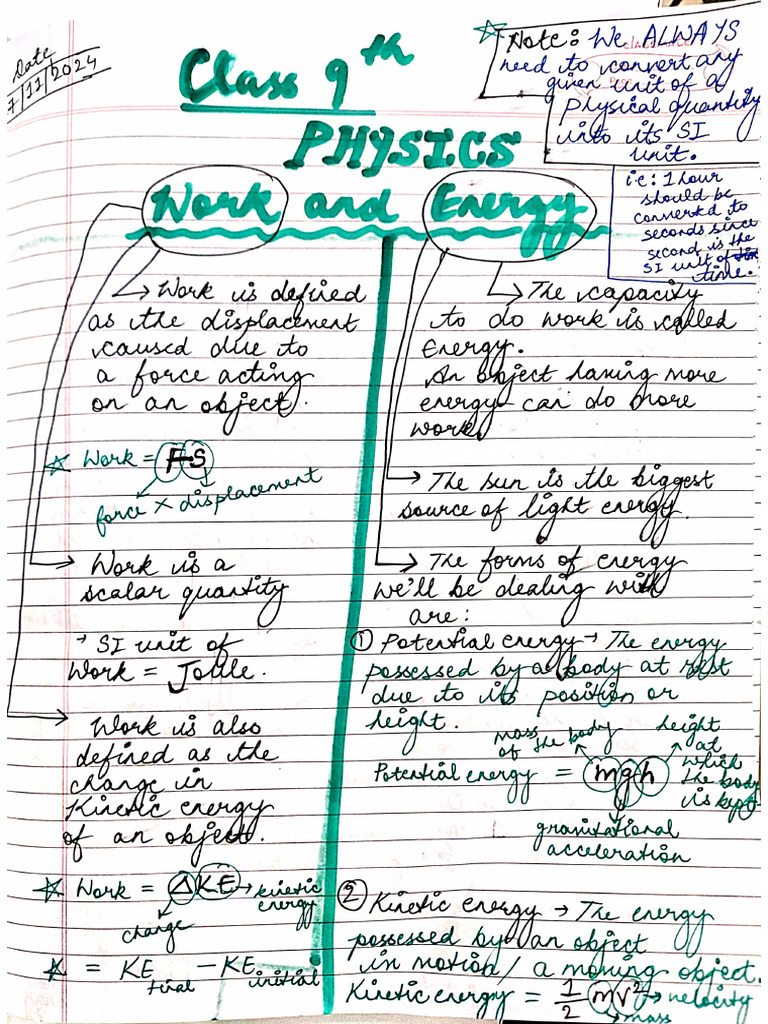 Date
7/11/2024
Class 9th
PHYSICS
Work and Energy
Note: We ALWAYS
need to convert any
given unit of a
physical quantity
into its SI
unit.
i.e: 1 hour
should be
converted to
seconds since
second is the
SI unit of
time.
→ Work is defined
as the displacement
caused due to
a force acting
on an object.
☆ Work = F-S
force × displacement
→ Work is a
scalar quantity
→ SI unit of
Work = Joule.
→ Work is also
defined as the
change in
Kinetic energy
of an object.
☆ Work = ΔKE → kinetic
energy
change
☆ = KE final − KE initial
→ The capacity
to do work is called
Energy.
An object having more
energy can do more
work.
→ The sun is the biggest
source of light energy.
→ The forms of energy
we'll be dealing with
are:
① Potential energy → The energy
possessed by a body at rest
due to its position or
height.
mass
of the body
height
at
which
the body
is kept
Potential energy = mgh
gravitational
acceleration
② Kinetic energy → The energy
possessed by an object
in motion / a moving object.
Kinetic energy = 1/2 mv² → velocity
→ mass